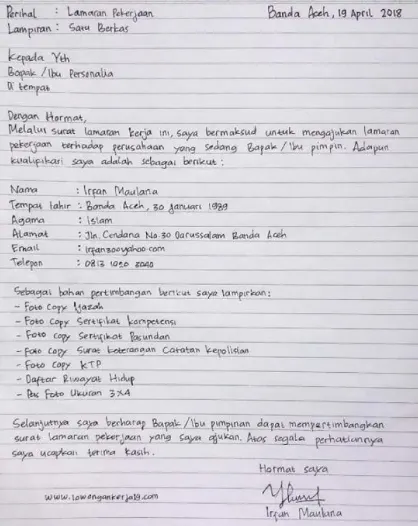 Perihal : Lamaran Pekerjaan Banda Aceh, 19 April 2018
Lampiran : Satu Berkas
Kepada Yth
Bapak /Ibu Personalia
Di tempat
Dengan Hormat,
Melalui surat lamaran kerja ini, saya bermaksud untuk mengajukan lamaran
pekerjaan terhadap perusahaan yang sedang Bapak /Ibu pimpin. Adapun
kualifikasi saya adalah sebagai berikut :
Nama : Irfan Maulana
Tempat lahir : Banda Aceh, 30 Januari 1989
Agama : islam
Alamat : Jln. Cendana No.30 Darussalam Banda Aceh
Email : irfan300yahoo.com
Telepon : 0813 1020 3040
Sebagai bahan pertimbangan berikut saya lampirkan :
- Foto Copy Ijazah
- Foto Copy Sertifikat kompetensi
- Foto copy Sertifikat Pacundan
- Foto Copy Surat keterangan Catatan kepolisian
- Foto Copy KTP
- Daftar Riwayat Hidup
- Pas Foto Ukuran 3X4
Selanjutnya saya berharap Bapak /Ibu pimpinan dapat mempertimbangkan
surat lamaran pekerjaan yang saya ajukan. Atas segala perhatiannya
saya ucapkan terima kasih.
Hormat saya
www.lowongankerja19.com
Irfan Maulana